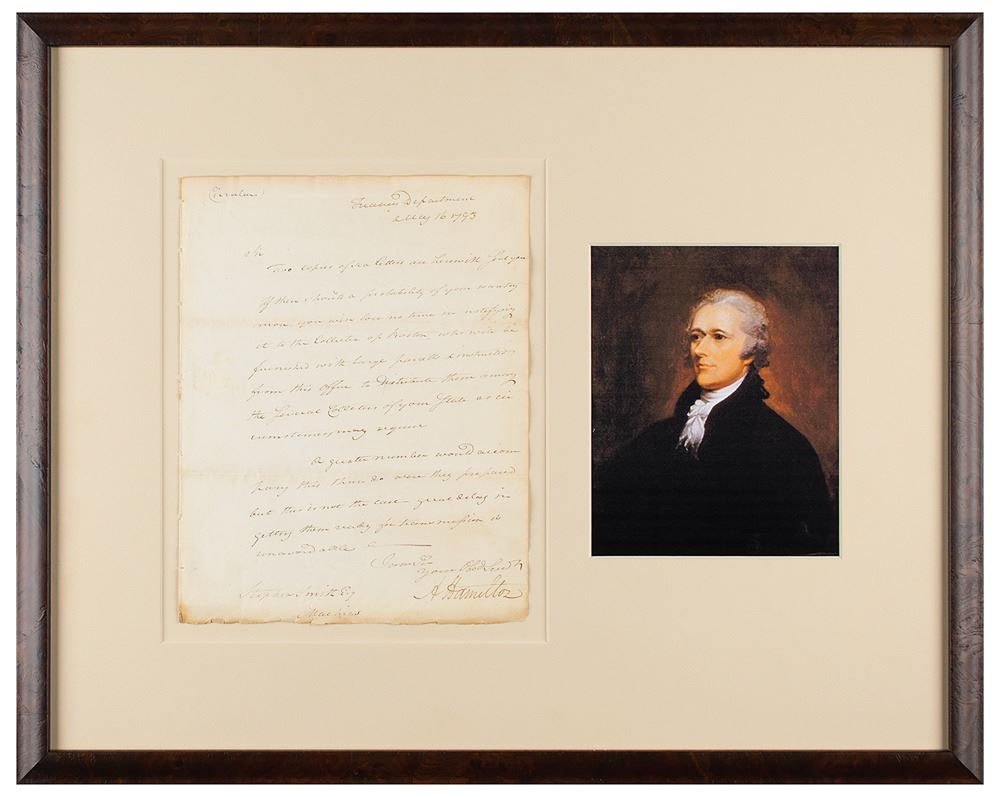 (Circular)
Treasury Department
May 16 1793
Sir
Two copies of Sea Letters are herewith sent you
If there should a probability of your wanting
more you will lose no time in notifying
it to the Collector of Boston who will be
furnished with large parcells & instructions
from this Office to distribute them among
the several Collectors of your State as cir
cumstances may require
A greater number would accom
pany this there do were they prepared
but this is not the case great delay in
getting them ready for transmission is
unavoidable
I am Sir
Your Obed Servt
A Hamilton
Stephen Smith Esq
Machias